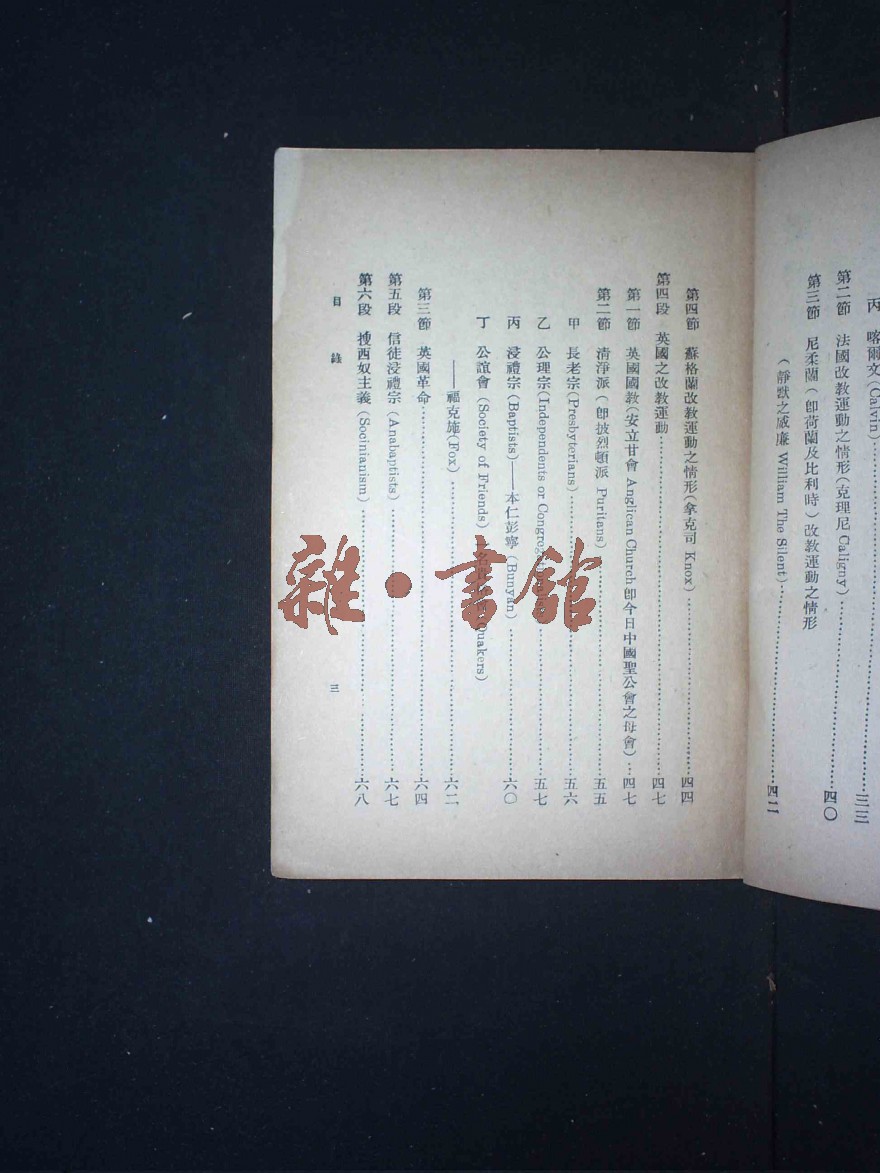 丙　喀爾文(Calvin)……三三
第二節　法國改教運動之情形(克理尼 Caligny)……四〇
第三節　尼柔蘭(卽荷蘭及比利時)改教運動之情形
(靜默之威廉 William The Silent)……四二
第四節　蘇格蘭改教運動之情形(拿克司 Knox)……四四
第四段　英國之改教運動……四七
第一節　英國國教(安立甘會 Anglican Church 卽今日中國聖公會之母會)…四七
第二節　清淨派(卽披烈頓派 Puritans)……五五
甲　長老宗(Presbyterians)……五六
乙　公理宗(Independents or ……五七
丙　浸禮宗(Baptists)——本仁彭寧(Bunyan)……六〇
丁　公誼會(Society of Friends)一名 Quakers)
——福克施(Fox)……六二
第三節　英國革命……六四
第五段　信徒浸禮宗(Anabaptists)……六七
第六段　搜西奴主義(Socinianism)……六八
目錄
三
雜·書館